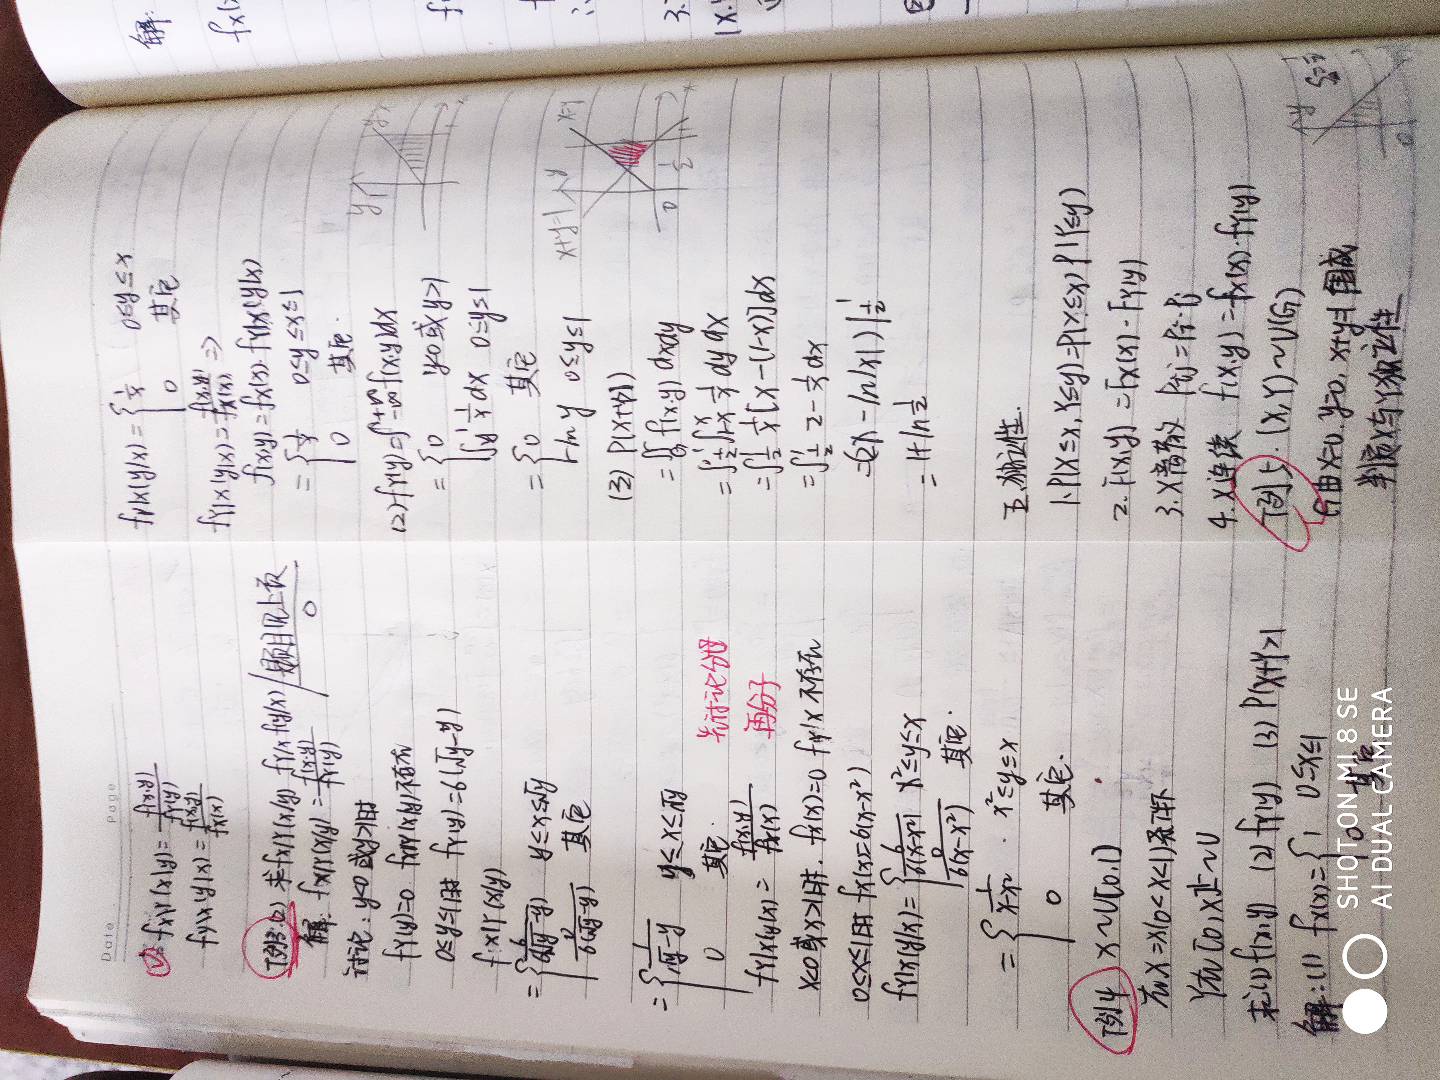 Date Page
fX|Y(x|y)=f(x,y)/fY(y)
fY|X(y|x)=f(x,y)/fX(x)
例3.(2) 求fX|Y(x|y) fY|X(y|x) / 题目见上页
0
解: fX|Y(x|y)=f(x,y)/fY(y)
讨论: y<0或y>1时
fY(y)=0 fX|Y(x|y)不存在
0≤y≤1时 fY(y)=6(√y-y)
fX|Y(x|y)
={6/6(√y-y) y≤x≤√y
0/6(√y-y) 其它
={1/√y-y y≤x≤√y
0 其它.
先讨论分母
再分子
fY|X(y|x)=f(x,y)/fX(x)
x<0或x>1时. fX(x)=0 fY|X不存在
0≤x≤1时 fX(x)=6(x-x²)
fY|X(y|x)={6/6(x-x²) x²≤y≤x
0/6(x-x²) 其它.
={1/x-x² . x²≤y≤x
0 其它.
例4 X~U[0,1]
在X=x(0<x<1)条件下
Y在[0,x]上~U
求(1)f(x,y) (2)fY(y) (3)P(X+Y>1
解:(1) fX(x)={1 0≤x≤1
0 其它
SHOT ON MI 8 SE
AI DUAL CAMERA
fY|X(y|x)={1/x 0≤y≤x
0 其它
fY|X(y|x)=f(x,y)/fX(x) =>
f(x,y)=fX(x)·fY|X(y|x)
={1/x 0≤y≤x≤1
0 其它.
(2)fY(y)=∫+∞-∞f(x,y)dx
={0 y<0或y>1
∫1y 1/x dx 0≤y≤1
={0 其它
-ln y 0≤y≤1
(3) P(X+Y>1)
=∬G f(x,y) dxdy
=∫1 1/2∫x 1-x 1/x dy dx
=∫1 1/2 1/x[x-(1-x)]dx
=∫1 1/2 2-1/x dx
=(2x-ln|x|)|1 1/2
=1+ln1/2
x+y=1 y x=y
0 1/2 1 x
五.独立性.
1.P(X≤x,Y≤y)=P(X≤x)P(Y≤y)
2.F(x,y)=FX(x)·FY(y)
3.X离散 Pij=Pi·Pj
4.X连续 f(x,y)=fX(x)·fY(y)
例5.(X,Y)~U(G)
G由x=0.y=0.x+y=1围成
判定X与Y独立性
y
0
S=1/2
解: